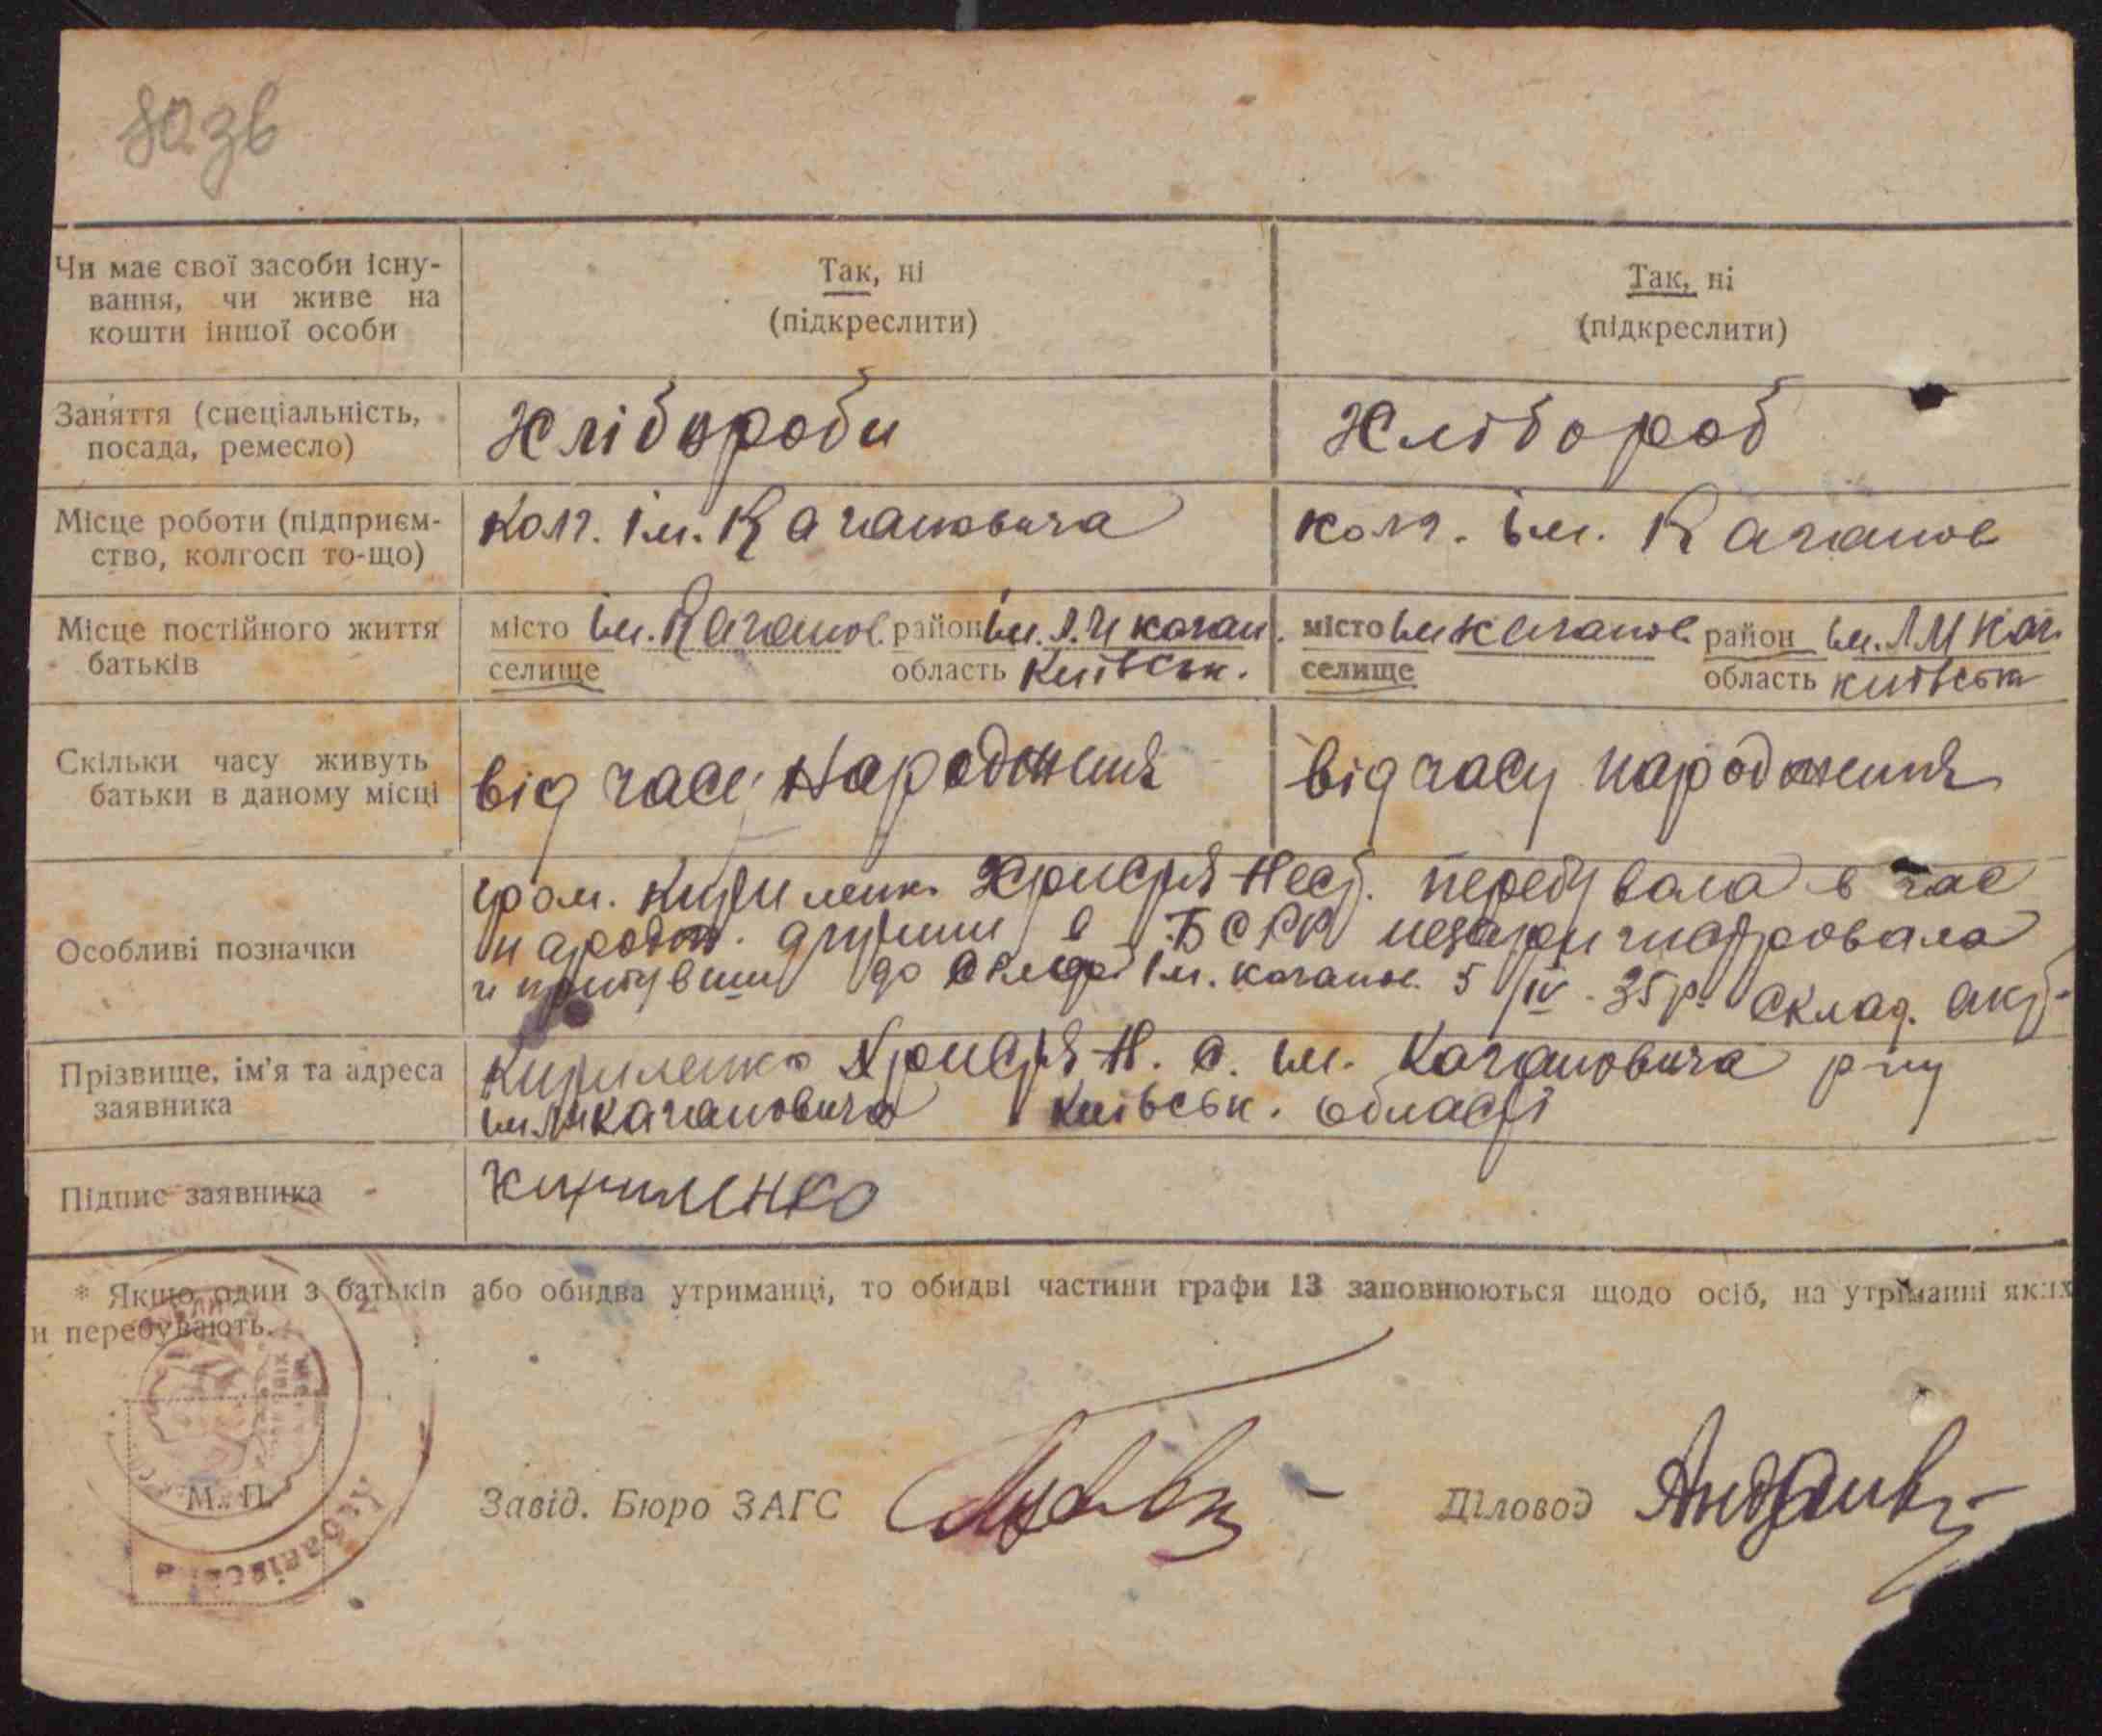 Чи має свої засоби існу-
вання, чи живе на
кошти іншої особи
Так, ні
(підкреслити)
Так, ні
(підкреслити)
Заняття (спеціальність,
посада, ремесло)
Хлібороби
Хлібороб
Місце роботи (підприєм-
ство, колгосп то-що)
Колг. Ім. Кагановича
колг. ім. Каганов
Місце постійного життя
батьків
місто ім. Каганов. район ім. Л.М каган.
селище область Київськ.
місто ім Каганов. район ім. Л М Каг.
селище область київська
Скільки часу живуть
батьки в даному місці
від часу Народження
від часу народження
Особливі позначки
гром. Кириленк. Христя Нест. перебувала в час
народж. дитини в БСРР незаригистровала
и прибувши до ім. каганов. 5/IV. 35р. склад. акт
Прізвище, ім'я та адреса
заявника
Кириленко Христя Н. с. ім. Кагановича р-ну
ім ЛМ Кагановича Київськ. області
Підпис заявника
Кириленко
* Якщо один з батьків або обидва утриманці, то обидві частини графи 13 заповнюються щодо осіб, на утриманні яких
и перебувають.
М. П.
Завід. Бюро ЗАГС
Діловод